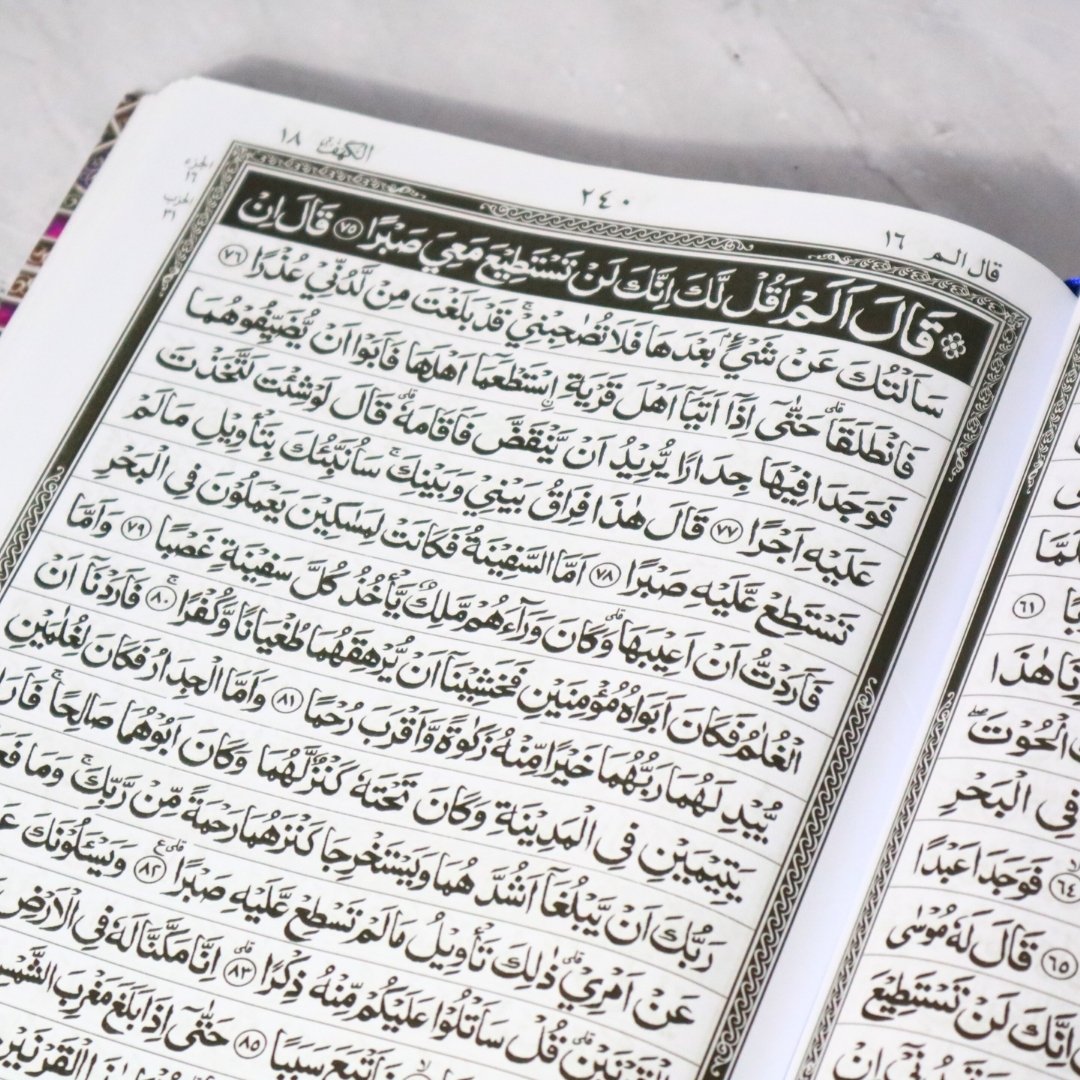 الكهف ١٨
٢٤٠
قال الم ١٦
الجزء
١٦
الحزب
٣١
۞ قَالَ اَلَمْ اَقُلْ لَّكَ اِنَّكَ لَنْ تَسْتَطِيْعَ مَعِيَ صَبْرًا ٧٥ قَالَ اِنْ
سَاَلْتُكَ عَنْ شَيْءٍۢ بَعْدَهَا فَلَا تُصٰحِبْنِيْۚ قَدْ بَلَغْتَ مِنْ لَّدُنِّيْ عُذْرًا ٧٦
فَانْطَلَقَاۗ حَتّٰىٓ اِذَآ اَتَيَآ اَهْلَ قَرْيَةِ ۨاسْتَطْعَمَآ اَهْلَهَا فَاَبَوْا اَنْ يُّضَيِّفُوْهُمَا
فَوَجَدَا فِيْهَا جِدَارًا يُّرِيْدُ اَنْ يَّنْقَضَّ فَاَقَامَهٗۗ قَالَ لَوْ شِئْتَ لَتَّخَذْتَ
عَلَيْهِ اَجْرًا ٧٧ قَالَ هٰذَا فِرَاقُ بَيْنِيْ وَبَيْنِكَۚ سَاُنَبِّئُكَ بِتَأْوِيْلِ مَا لَمْ
تَسْتَطِعْ عَّلَيْهِ صَبْرًا ٧٨ اَمَّا السَّفِيْنَةُ فَكَانَتْ لِمَسٰكِيْنَ يَعْمَلُوْنَ فِى الْبَحْرِ
فَاَرَدْتُّ اَنْ اَعِيْبَهَاۗ وَكَانَ وَرَاۤءَهُمْ مَّلِكٌ يَّأْخُذُ كُلَّ سَفِيْنَةٍ غَصْبًا ٧٩ وَاَمَّا
الْغُلٰمُ فَكَانَ اَبَوَاهُ مُؤْمِنَيْنِ فَخَشِيْنَآ اَنْ يُّرْهِقَهُمَا طُغْيَانًا وَّكُفْرًاۚ ٨٠ فَاَرَدْنَآ اَنْ
يُّبْدِلَهُمَا رَبُّهُمَا خَيْرًا مِّنْهُ زَكٰوةً وَّاَقْرَبَ رُحْمًا ٨١ وَاَمَّا الْجِدَارُ فَكَانَ لِغُلٰمَيْنِ
يَتِيْمَيْنِ فِى الْمَدِيْنَةِ وَكَانَ تَحْتَهٗ كَنْزٌ لَّهُمَا وَكَانَ اَبُوْهُمَا صَالِحًاۚ
رَبُّكَ اَنْ يَّبْلُغَآ اَشُدَّهُمَا وَيَسْتَخْرِجَا كَنْزَهُمَا رَحْمَةً مِّنْ رَّبِّكَۚ وَمَا
عَنْ اَمْرِيْۗ ذٰلِكَ تَأْوِيْلُ مَا لَمْ تَسْطِعْ عَّلَيْهِ صَبْرًا ٨٢ وَيَسْـَٔلُوْنَكَ
قُلْ سَاَتْلُوْا عَلَيْكُمْ مِّنْهُ ذِكْرًاۗ ٨٣ اِنَّا مَكَّنَّا لَهٗ فِى الْاَرْضِ
سَبَبًا ٨٥ حَتّٰىٓ اِذَا بَلَغَ مَغْرِبَ
الْقَرْنَيْنِ
٦١
هٰذَا
الْحُوْتَۖ
فِى الْبَحْرِ
٦٤ فَوَجَدَا عَبْدًا
٦٥ قَالَ لَهٗ مُوْسٰى
اِنَّكَ لَنْ تَسْتَطِيْعَ